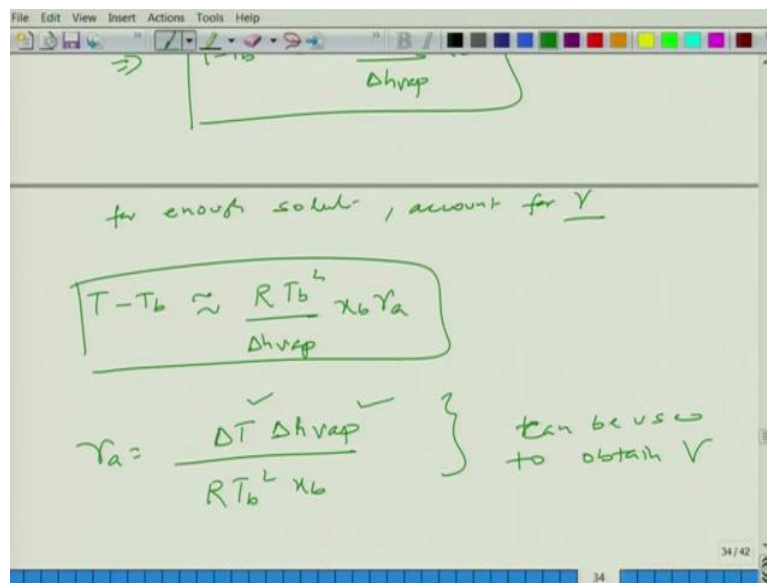 File Edit View Insert Actions Tools Help
⇒ T-Tb
Δhvap
for enough solut , account for γ
T-Tb ≈ R Tb² / Δhvap xb γa
γa = ΔT Δhvap / R Tb² xb } can be used to obtain γ
34/42
34